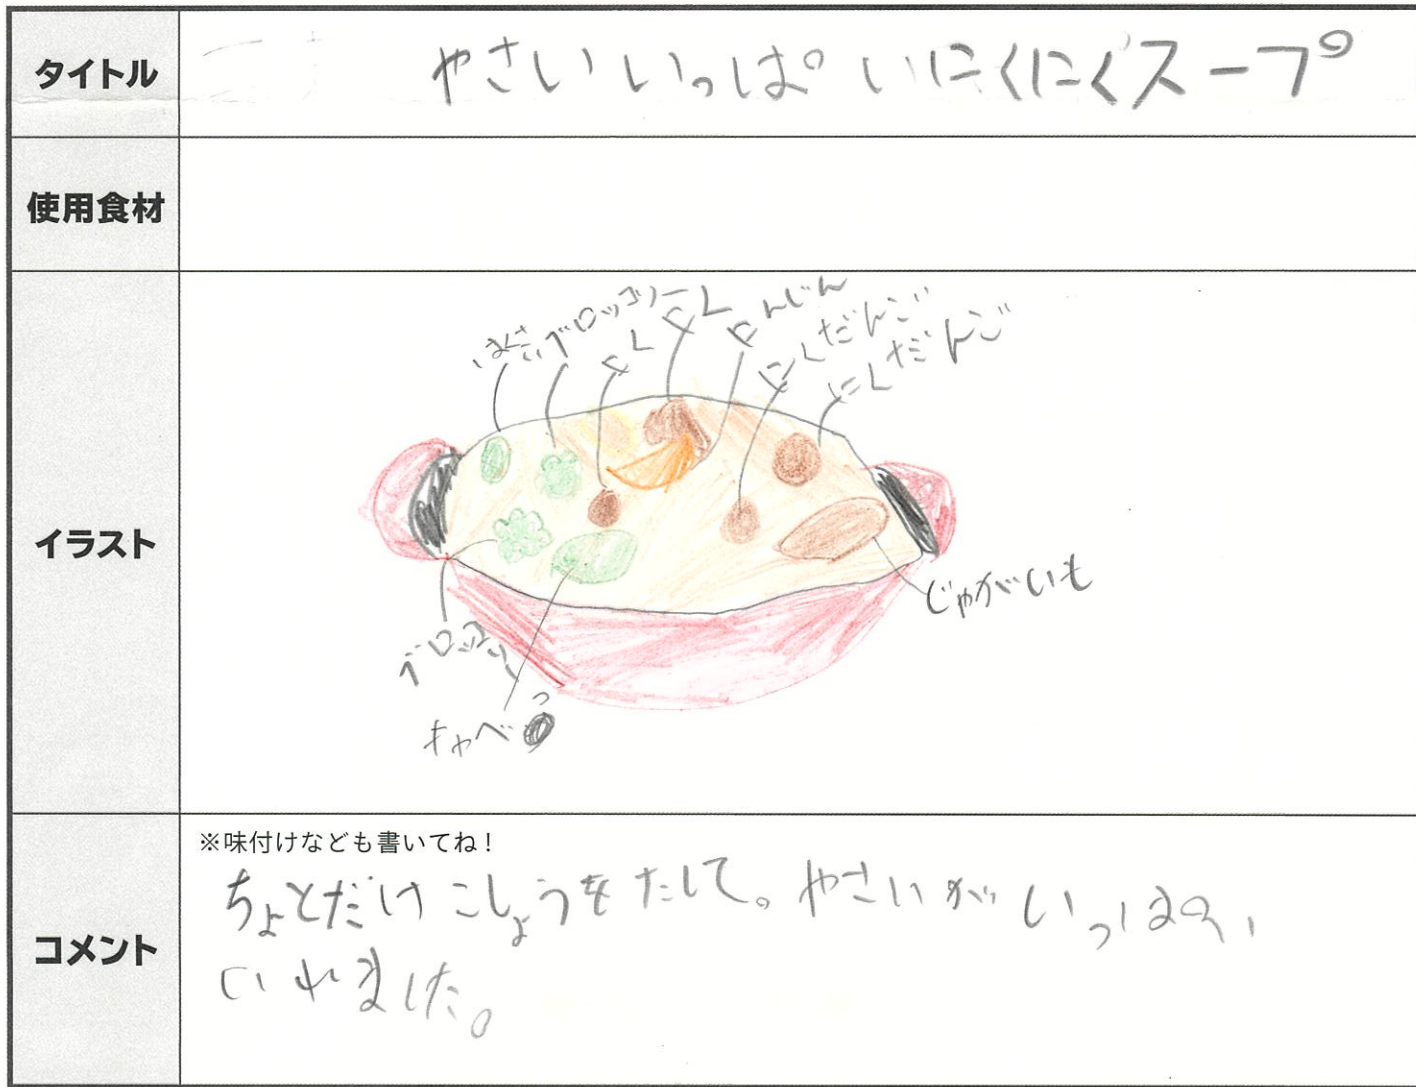 タイトル
やさいいっぱいにくにくスープ
使用食材
イラスト
はくさい
ブロッコリー
にく
にく
にんじん
にくだんご
にくだんご
じゃがいも
ブロッコリー
キャベつ
コメント
※味付けなども書いてね！
ちょとだけこしょうをたして。やさいがいっぱい
いれました。